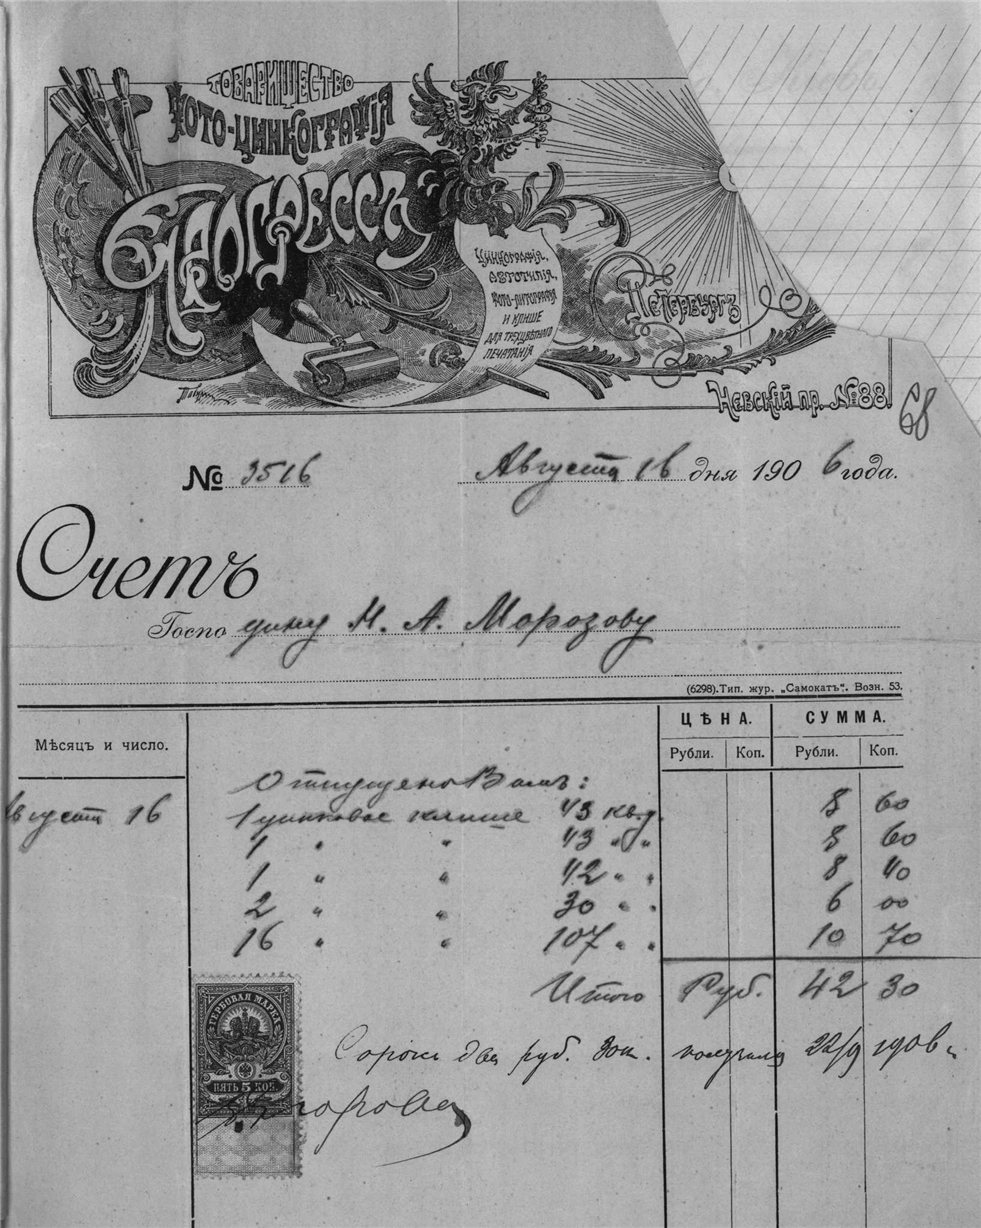 ТОВАРИЩЕСТВО
ФОТО-ЦИНКОГРАФІЯ
ПРОГРЕССЪ
ЦИНКОГРАФІЯ,
АВТОТИПІЯ,
ФОТО-ЛИТОГРАФІЯ
И КЛИШЕ
ДЛЯ ТРЕХЦВѢТНАГО
ПЕЧАТАНІЯ
С. ПЕТЕРБУРГЪ
НЕВСКІЙ ПР. №88.
68
№ 3516 Августа 16 дня 1906 года.
Счетъ
Господину М. А. Морозову
(6298). Тип. жур. „Самокатъ“. Возн. 53.
Мѣсяцъ и число. ЦѢНА. СУММА.
Рубли. Коп. Рубли. Коп.
Отпущено Вамъ:
Август 16 1 цинковое клише 43 кв.д. 8 60
1 " " 43 " " 8 60
1 " " 42 " " 8 40
2 " " 30 " " 6 00
16 " " 107 " " 10 70
Итого Руб. 42 30
ГЕРБОВАЯ МАРКА
ПЯТЬ 5 КОП.
Сорок два руб. 30к. получила 22/9 1906 г.